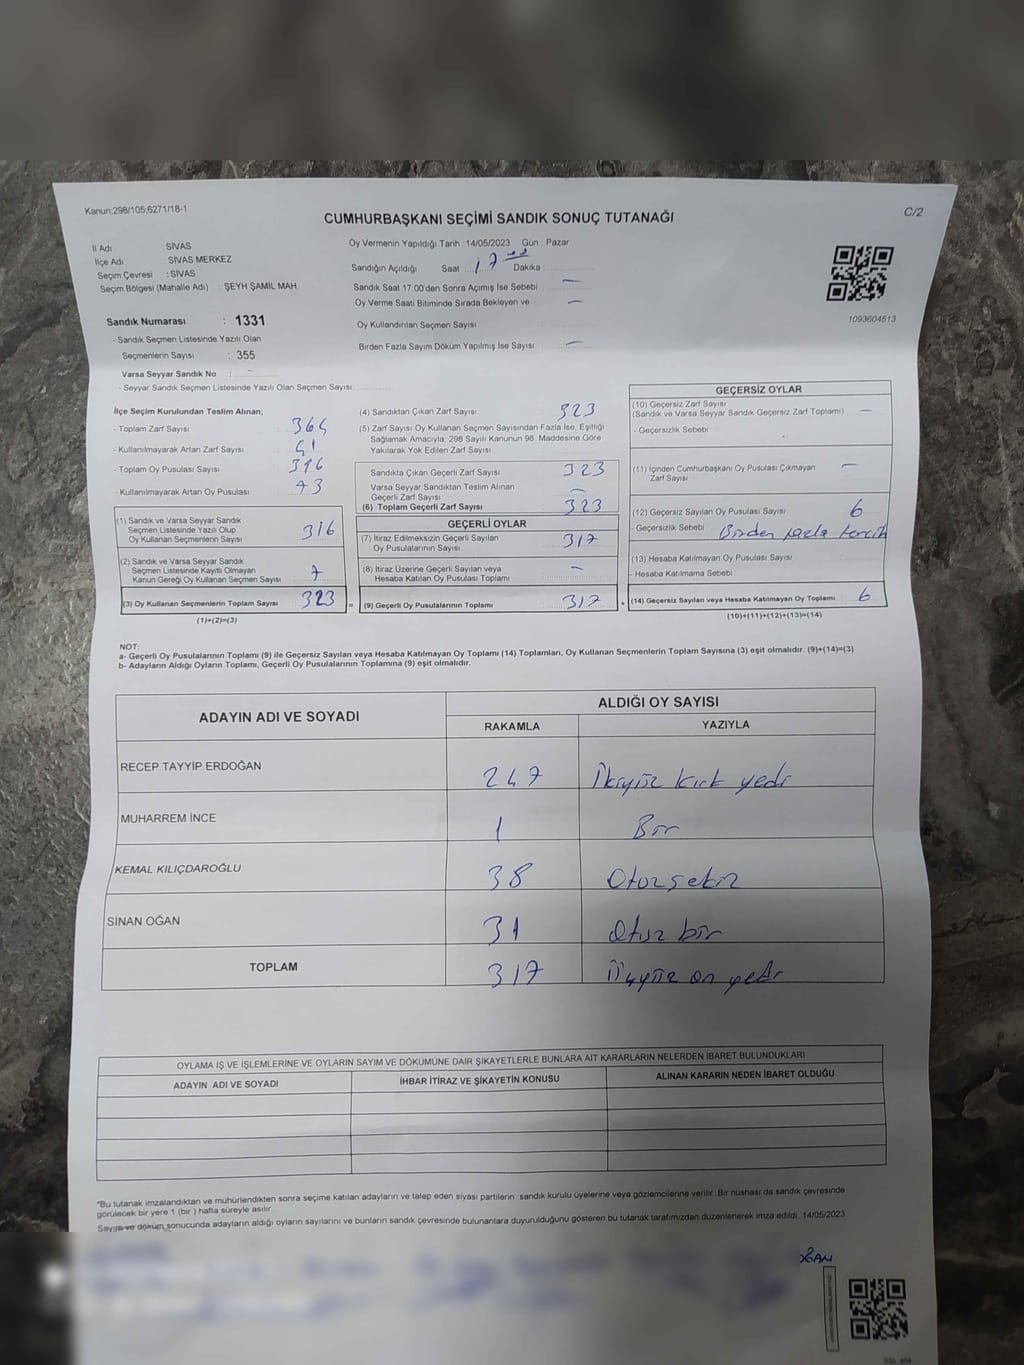 Kanun;298/105;6271/18-1
CUMHURBAŞKANI SEÇİMİ SANDIK SONUÇ TUTANAĞI
C/2
İl Adı : SİVAS
İlçe Adı : SİVAS MERKEZ
Seçim Çevresi : SİVAS
Seçim Bölgesi (Mahalle Adı) : ŞEYH ŞAMİL MAH.
Sandık Numarası : 1331
- Sandık Seçmen Listesinde Yazılı Olan
Seçmenlerin Sayısı : 355
Varsa Seyyar Sandık No : -
- Seyyar Sandık Seçmen Listesinde Yazılı Olan Seçmen Sayısı:
Oy Vermenin Yapıldığı Tarih 14/05/2023 Gün Pazar
Sandığın Açıldığı Saat 17 Dakika
Sandık Saat 17:00'den Sonra Açımış İse Sebebi : -
Oy Verme Saati Bitiminde Sırada Bekleyen ve -
Oy Kullandırılan Seçmen Sayısı :
Birden Fazla Sayım Döküm Yapılmış İse Sayısı : -
1093604513
İlçe Seçim Kurulundan Teslim Alınan;
- Toplam Zarf Sayısı : 364
- Kullanılmayarak Artan Zarf Sayısı : 41
- Toplam Oy Pusulası Sayısı : 396
- Kullanılmayarak Artan Oy Pusulası : 73
(1) Sandık ve Varsa Seyyar Sandık
Seçmen Listesinde Yazılı Olup
Oy Kullanan Seçmenlerin Sayısı : 316
(2) Sandık ve Varsa Seyyar Sandık
Seçmen Listesinde Kayıtlı Olmayan
Kanun Gereği Oy Kullanan Seçmen Sayısı : 7
(3) Oy Kullanan Seçmenlerin Toplam Sayısı : 323 =
(1)+(2)=(3)
(4) Sandıktan Çıkan Zarf Sayısı : 323
(5) Zarf Sayısı Oy Kullanan Seçmen Sayısından Fazla İse, Eşitliği
Sağlamak Amacıyla; 298 Sayılı Kanunun 98. Maddesine Göre
Yakılarak Yok Edilen Zarf Sayısı :
Sandıkta Çıkan Geçerli Zarf Sayısı : 323
Varsa Seyyar Sandıktan Teslim Alınan
Geçerli Zarf Sayısı : -
(6) Toplam Geçerli Zarf Sayısı : 323
GEÇERLİ OYLAR
(7) İtiraz Edilmeksizin Geçerli Sayılan
Oy Pusulalarının Sayısı : 317
(8) İtiraz Üzerine Geçerli Sayılan veya
Hesaba Katılan Oy Pusulası Toplamı : -
(9) Geçerli Oy Pusulalarının Toplamı : 317 +
GEÇERSİZ OYLAR
(10) Geçersiz Zarf Sayısı
(Sandık ve Varsa Seyyar Sandık Geçersiz Zarf Toplamı) : -
- Geçersizlik Sebebi :
(11) İçinden Cumhurbaşkanı Oy Pusulası Çıkmayan
Zarf Sayısı : -
(12) Geçersiz Sayılan Oy Pusulası Sayısı : 6
- Geçersizlik Sebebi : Birden fazla tercih
(13) Hesaba Katılmayan Oy Pusulası Sayısı :
- Hesaba Katılmama Sebebi :
(14) Geçersiz Sayılan veya Hesaba Katılmayan Oy Toplamı : 6
(10)+(11)+(12)+(13)=(14)
NOT:
a- Geçerli Oy Pusulalarının Toplamı (9) ile Geçersiz Sayılan veya Hesaba Katılmayan Oy Toplamı (14) Toplamları, Oy Kullanan Seçmenlerin Toplam Sayısına (3) eşit olmalıdır. (9)+(14)=(3)
b- Adayların Aldığı Oyların Toplamı, Geçerli Oy Pusulalarının Toplamına (9) eşit olmalıdır.
ADAYIN ADI VE SOYADI
ALDIĞI OY SAYISI
RAKAMLA YAZIYLA
RECEP TAYYİP ERDOĞAN 247 İkiyüz kırk yedi
MUHARREM İNCE 1 Bir
KEMAL KILIÇDAROĞLU 38 Otuzsekiz
SİNAN OĞAN 31 Otuz bir
TOPLAM 317 Üçyüz on yedi
OYLAMA İŞ VE İŞLEMLERİNE VE OYLARIN SAYIM VE DÖKÜMÜNE DAİR ŞİKAYETLERLE BUNLARA AİT KARARLARIN NELERDEN İBARET BULUNDUKLARI
ADAYIN ADI VE SOYADI İHBAR İTİRAZ VE ŞİKAYETİN KONUSU ALINAN KARARIN NEDEN İBARET OLDUĞU
*Bu tutanak imzalandıktan ve mühürlendikten sonra seçime katılan adayların ve talep eden siyasi partilerin sandık kurulu üyelerine veya gözlemcilerine verilir. Bir nüshası da sandık çevresinde
görülecek bir yere 1 (bir ) hafta süreyle asılır.
Sayım ve döküm sonucunda adayların aldığı oyların sayılarını ve bunların sandık çevresinde bulunanlara duyurulduğunu gösteren bu tutanak tarafımızdan düzenlenerek imza edildi. 14/05/2023